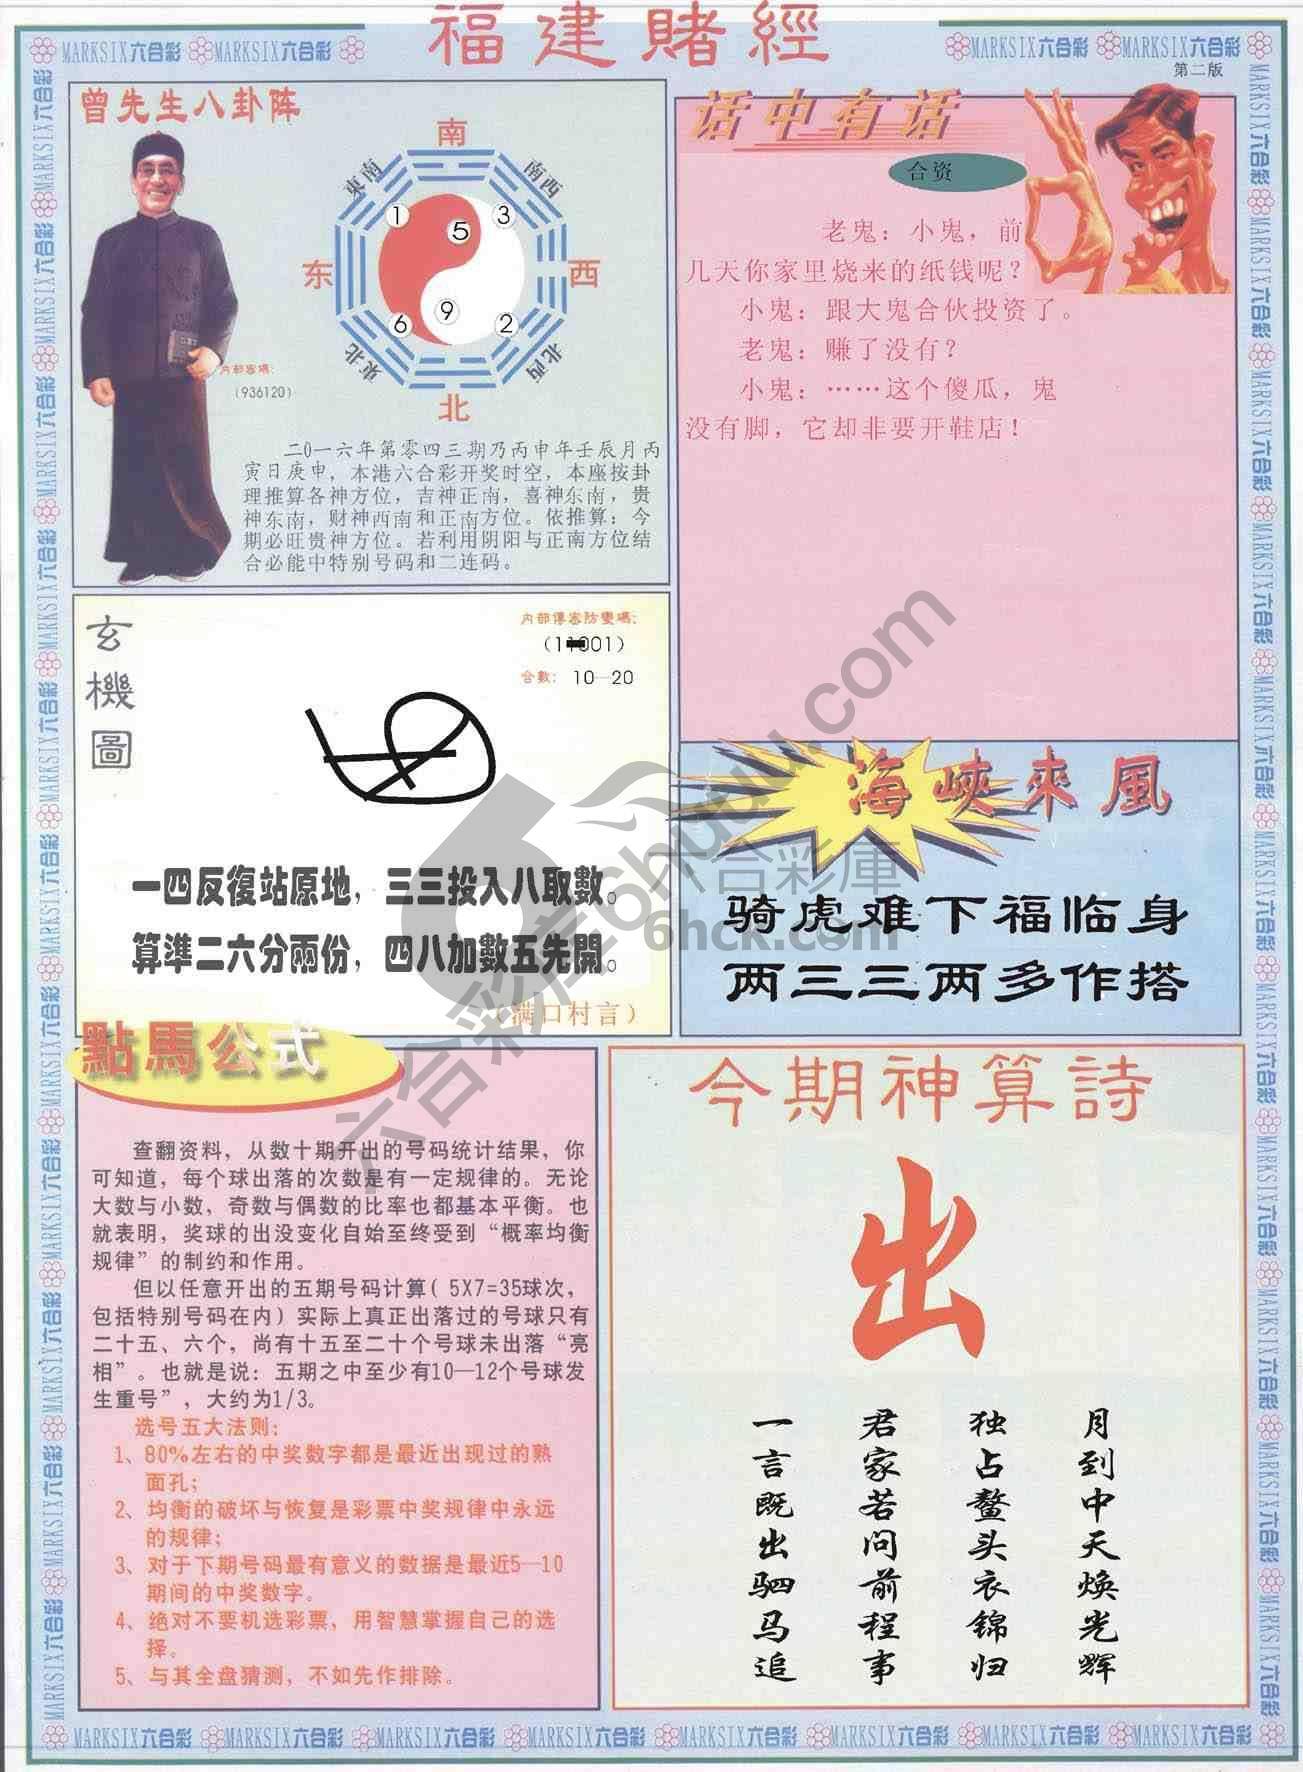 福建賭經
MARKSIX六合彩 MARKSIX六合彩
MARKSIX六合彩 MARKSIX六合彩
第二版
曾先生八卦阵
南
東南
南西
1
3
5
东
西
9
6
2
東北
北西
北
内部密碼:
(936120)
二0一六年第零四三期乃丙申年壬辰月丙
寅日庚申，本港六合彩开奖时空，本座按卦
理推算各神方位，吉神正南，喜神东南，贵
神东南，财神西南和正南方位。依推算：今
期必旺贵神方位。若利用阴阳与正南方位结
合必能中特别号码和二连码。
话中有话
合资
老鬼：小鬼，前
几天你家里烧来的纸钱呢？
小鬼：跟大鬼合伙投资了。
老鬼：赚了没有？
小鬼：……这个傻瓜，鬼
没有脚，它却非要开鞋店！
玄機圖
内部傳密防變碼:
合數: 10—20
一四反復站原地，三三投入八取數。
算準二六分兩份，四八加數五先開。
(满口村言)
海峽來風
骑虎难下福临身
两三三两多作搭
點馬公式
查翻资料，从数十期开出的号码统计结果，你
可知道，每个球出落的次数是有一定规律的。无论
大数与小数，奇数与偶数的比率也都基本平衡。也
就表明，奖球的出没变化自始至终受到“概率均衡
规律”的制约和作用。
但以任意开出的五期号码计算( 5X7=35球次，
包括特别号码在内) 实际上真正出落过的号球只有
二十五、六个，尚有十五至二十个号球未出落“亮
相”。也就是说：五期之中至少有10—12个号球发
生重号”，大约为1/3。
选号五大法则:
1、80%左右的中奖数字都是最近出现过的熟
面孔;
2、均衡的破坏与恢复是彩票中奖规律中永远
的规律;
3、对于下期号码最有意义的数据是最近5—10
期间的中奖数字。
4、绝对不要机选彩票，用智慧掌握自己的选
择。
5、与其全盘猜测，不如先作排除。
今期神算詩
出
月到中天焕光辉
独占鳌头衣锦归
君家若问前程事
一言既出驷马追
六合彩库6hcuu.com
六合彩庫
6hck.com
MARKSIX六合彩 MARKSIX六合彩 MARKSIX六合彩 MARKSIX六合彩 MARKSIX六合彩 MARKSIX六合彩 MARKSIX六合彩 MARKSIX六合彩